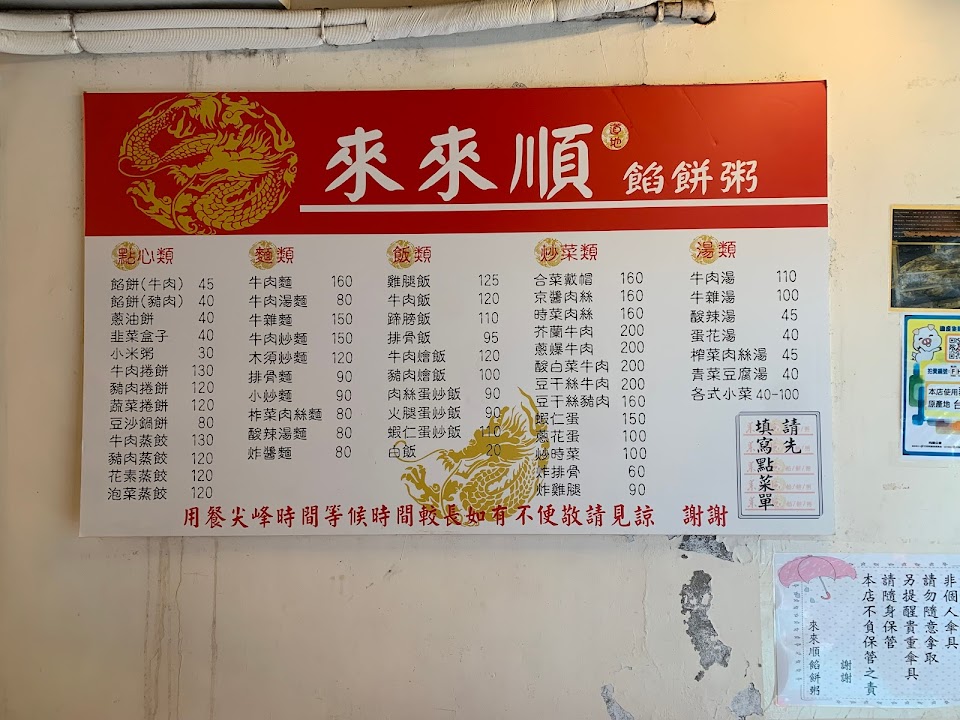 來來順 道地 餡餅粥
點心類
餡餅(牛肉) 45
餡餅(豬肉) 40
蔥油餅 40
韭菜盒子 40
小米粥 30
牛肉捲餅 130
豬肉捲餅 120
蔬菜捲餅 120
豆沙鍋餅 80
牛肉蒸餃 130
豬肉蒸餃 120
花素蒸餃 120
泡菜蒸餃 120
麵類
牛肉麵 160
牛肉湯麵 80
牛雜麵 150
牛肉炒麵 150
木須炒麵 120
排骨麵 90
小炒麵 90
柞菜肉絲麵 80
酸辣湯麵 80
炸醬麵 80
飯類
雞腿飯 125
牛肉飯 120
蹄膀飯 110
排骨飯 95
牛肉燴飯 120
豬肉燴飯 100
肉絲蛋炒飯 90
火腿蛋炒飯 90
蝦仁蛋炒飯 110
白飯 20
炒菜類
合菜戴帽 160
京醬肉絲 160
時菜肉絲 160
芥蘭牛肉 200
蔥爆牛肉 200
酸白菜牛肉 200
豆干絲牛肉 200
豆干絲豬肉 160
蝦仁蛋 150
蔥花蛋 100
炒時菜 100
炸排骨 60
炸雞腿 90
湯類
牛肉湯 110
牛雜湯 100
酸辣湯 45
蛋花湯 40
榨菜肉絲湯 45
青菜豆腐湯 40
各式小菜 40-100
請先
填寫點菜單
用餐尖峰時間等候時間較長如有不便敬請見諒 謝謝
本店使用
原產地 台
非個人傘具
請勿隨意拿取
另提醒貴重傘具
請隨身保管
本店不負保管之責
謝謝
來來順餡餅粥